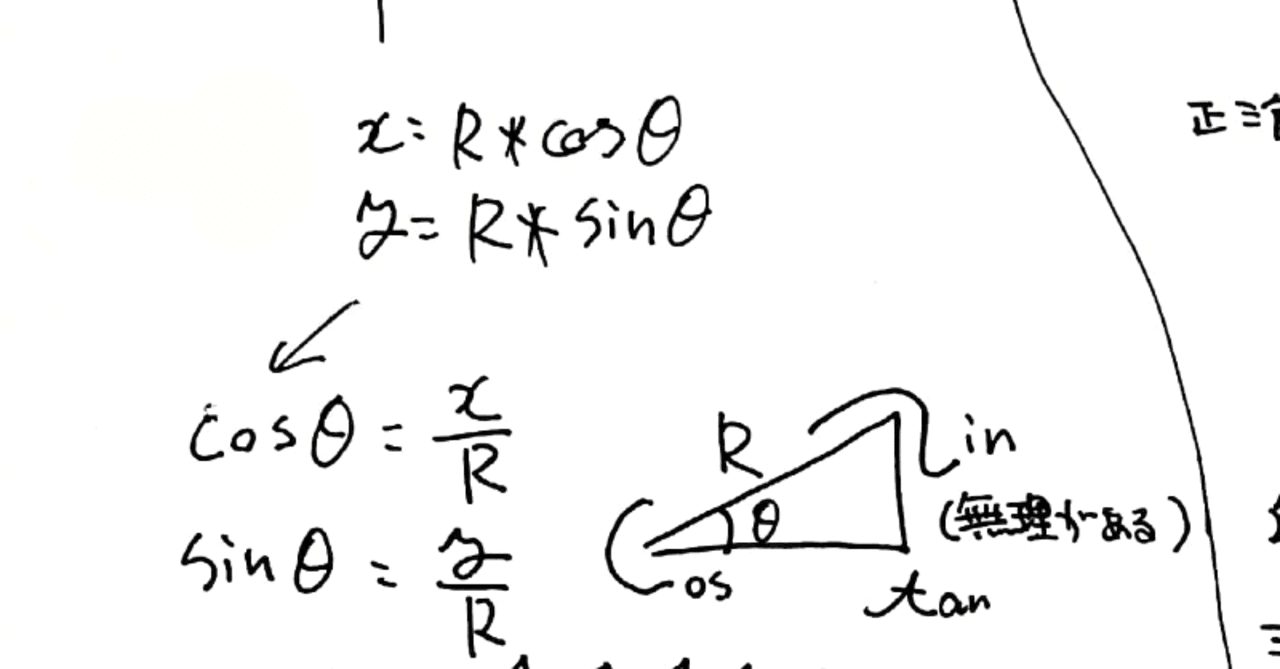 x = R * cosθ
y = R * sinθ
cosθ = x/R
sinθ = y/R
R
θ
cos
sin
(無理がある)
tan
正三